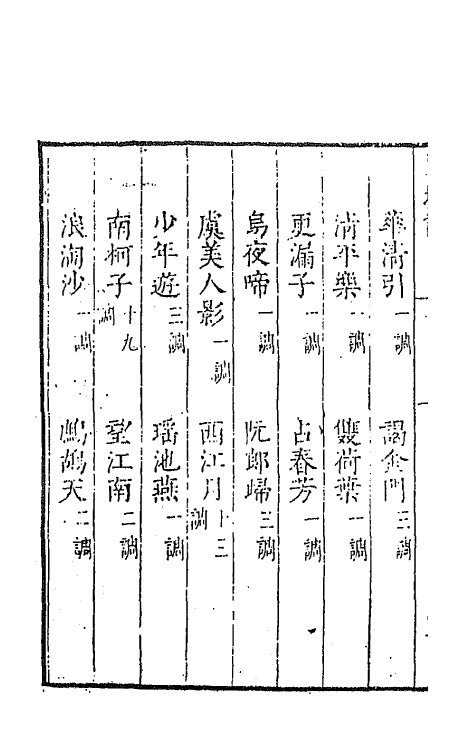 華清引一調　謁金門三調
清平樂一調　雙荷葉一調
更漏子一調　占春芳一調
烏夜啼一調　阮郎歸三調
虞美人影一調　西江月十三調
少年遊三調　瑤池燕一調
南柯子十九調　望江南二調
浪淘沙一調　鷓鴣天二調